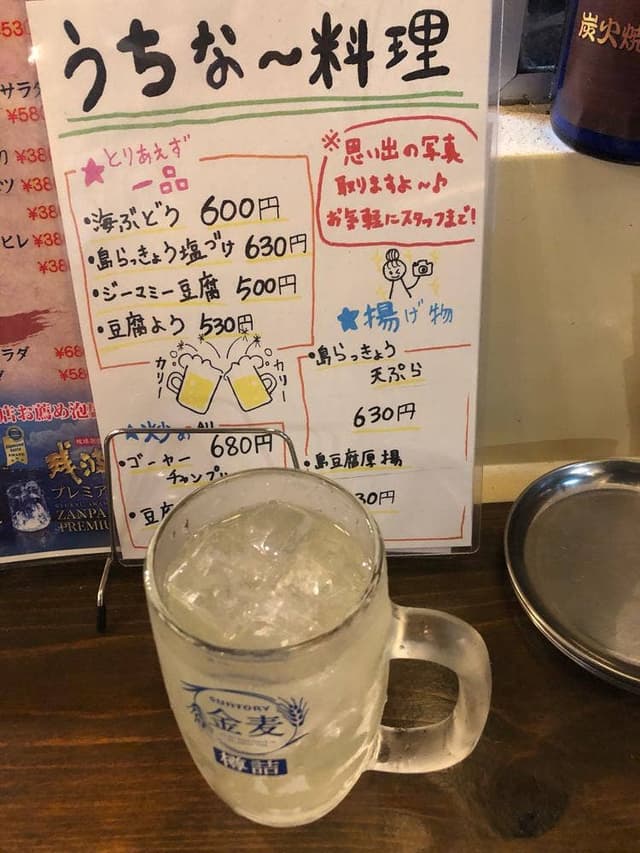 うちな～料理
★とりあえず
一品
・海ぶどう 600円
・島らっきょう塩づけ 630円
・ジーマミー豆腐 500円
・豆腐よう 530円
カリー
カリー
・ゴーヤー 680円
チャンプル
※思い出の写真
取りますよ～♪
お気軽にスタッフまで!
★揚げ物
・島らっきょう
天ぷら
630円
・島豆腐厚揚
30円
サラダ
¥38
ツ ¥38
¥38
ヒレ ¥38
¥38
ラダ ¥68
¥58
店お薦め泡
残波
プレミア
ZANPA
PREMIU
炭火焼
SUNTORY
金麦
樽詰